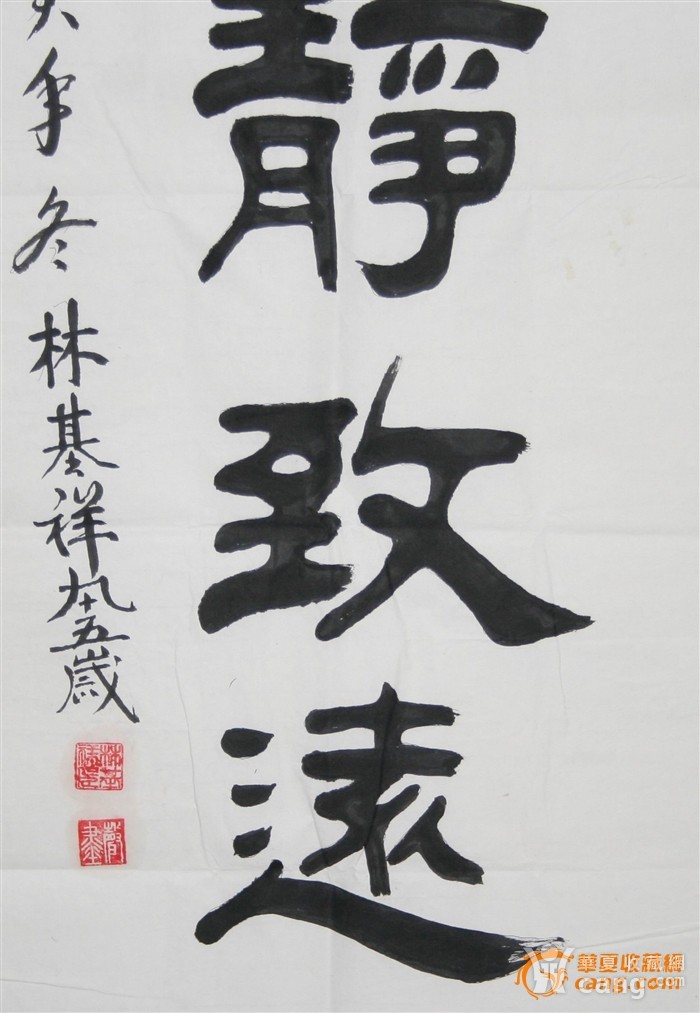 靜致遠
年冬林基祥九十五歲
華夏收藏網
cang.com